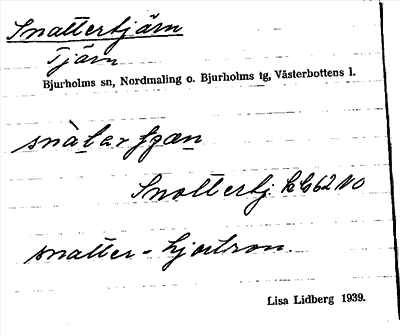 Snattertjärn
Tjärn
Bjurholms sn, Nordmaling o. Bjurholms tg, Västerbottens l.
Snottertj. 62 NO
snatter - hjortron.
Lisa Lidberg 1939.